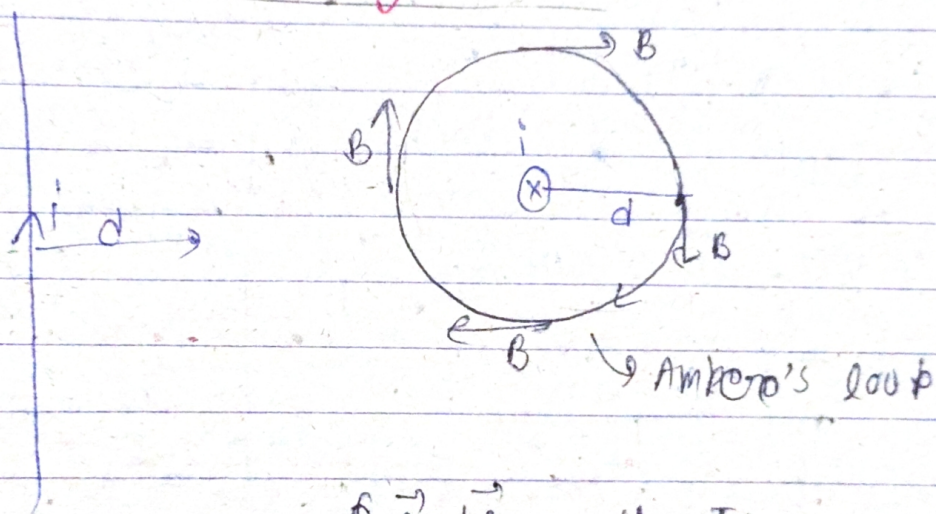 B
B
i
i
d
d
B
B
Ampere's loop